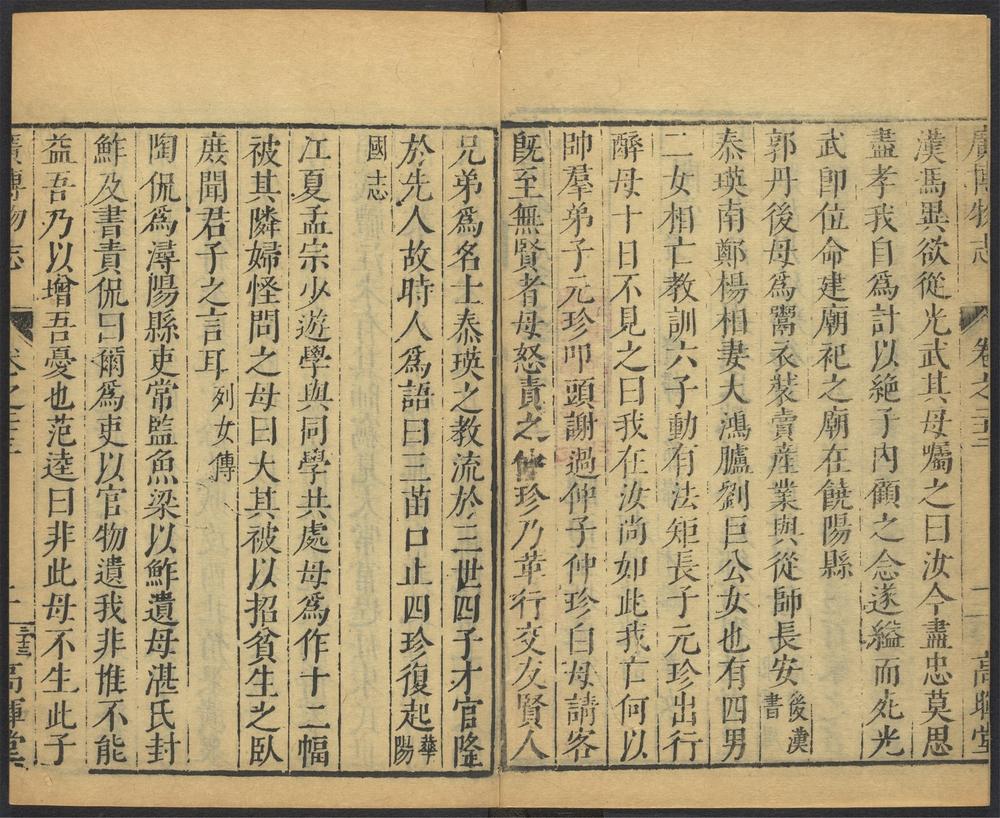 廣博物志 卷之二 高暉堂
漢馮異欲從光武其母囑之曰汝今盡忠莫思
盡孝我自爲計以絶子內顧之念遂縊而死光
武卽位命建廟祀之廟在饒陽縣
郭丹後母爲鬻衣裝賣産業與從師長安後漢書
泰瑛南鄭楊相妻大鴻臚劉巨公女也有四男
二女相亡教訓六子動有法矩長子元珍出行
醉母十日不見之曰我在汝尚如此我亡何以
帥羣弟子元珍叩頭謝過仲子仲珍白母請客
旣至無賢者母怒責之仲珍乃革行交友賢人
兄弟爲名士泰瑛之教流於三世四子才官隆
於先人故時人爲語曰三苗口止四珍復起華陽
國志
江夏孟宗少遊學與同學共處母爲作十二幅
被其隣婦怪問之母曰大其被以招貧生之臥
庻聞君子之言耳列女傳
陶侃爲潯陽縣吏常監魚梁以鮓遺母湛氏封
鮓及書責侃曰爾爲吏以官物遺我非惟不能
益吾乃以增吾憂也范逵曰非此母不生此子
廣博物志 卷之二 高暉堂